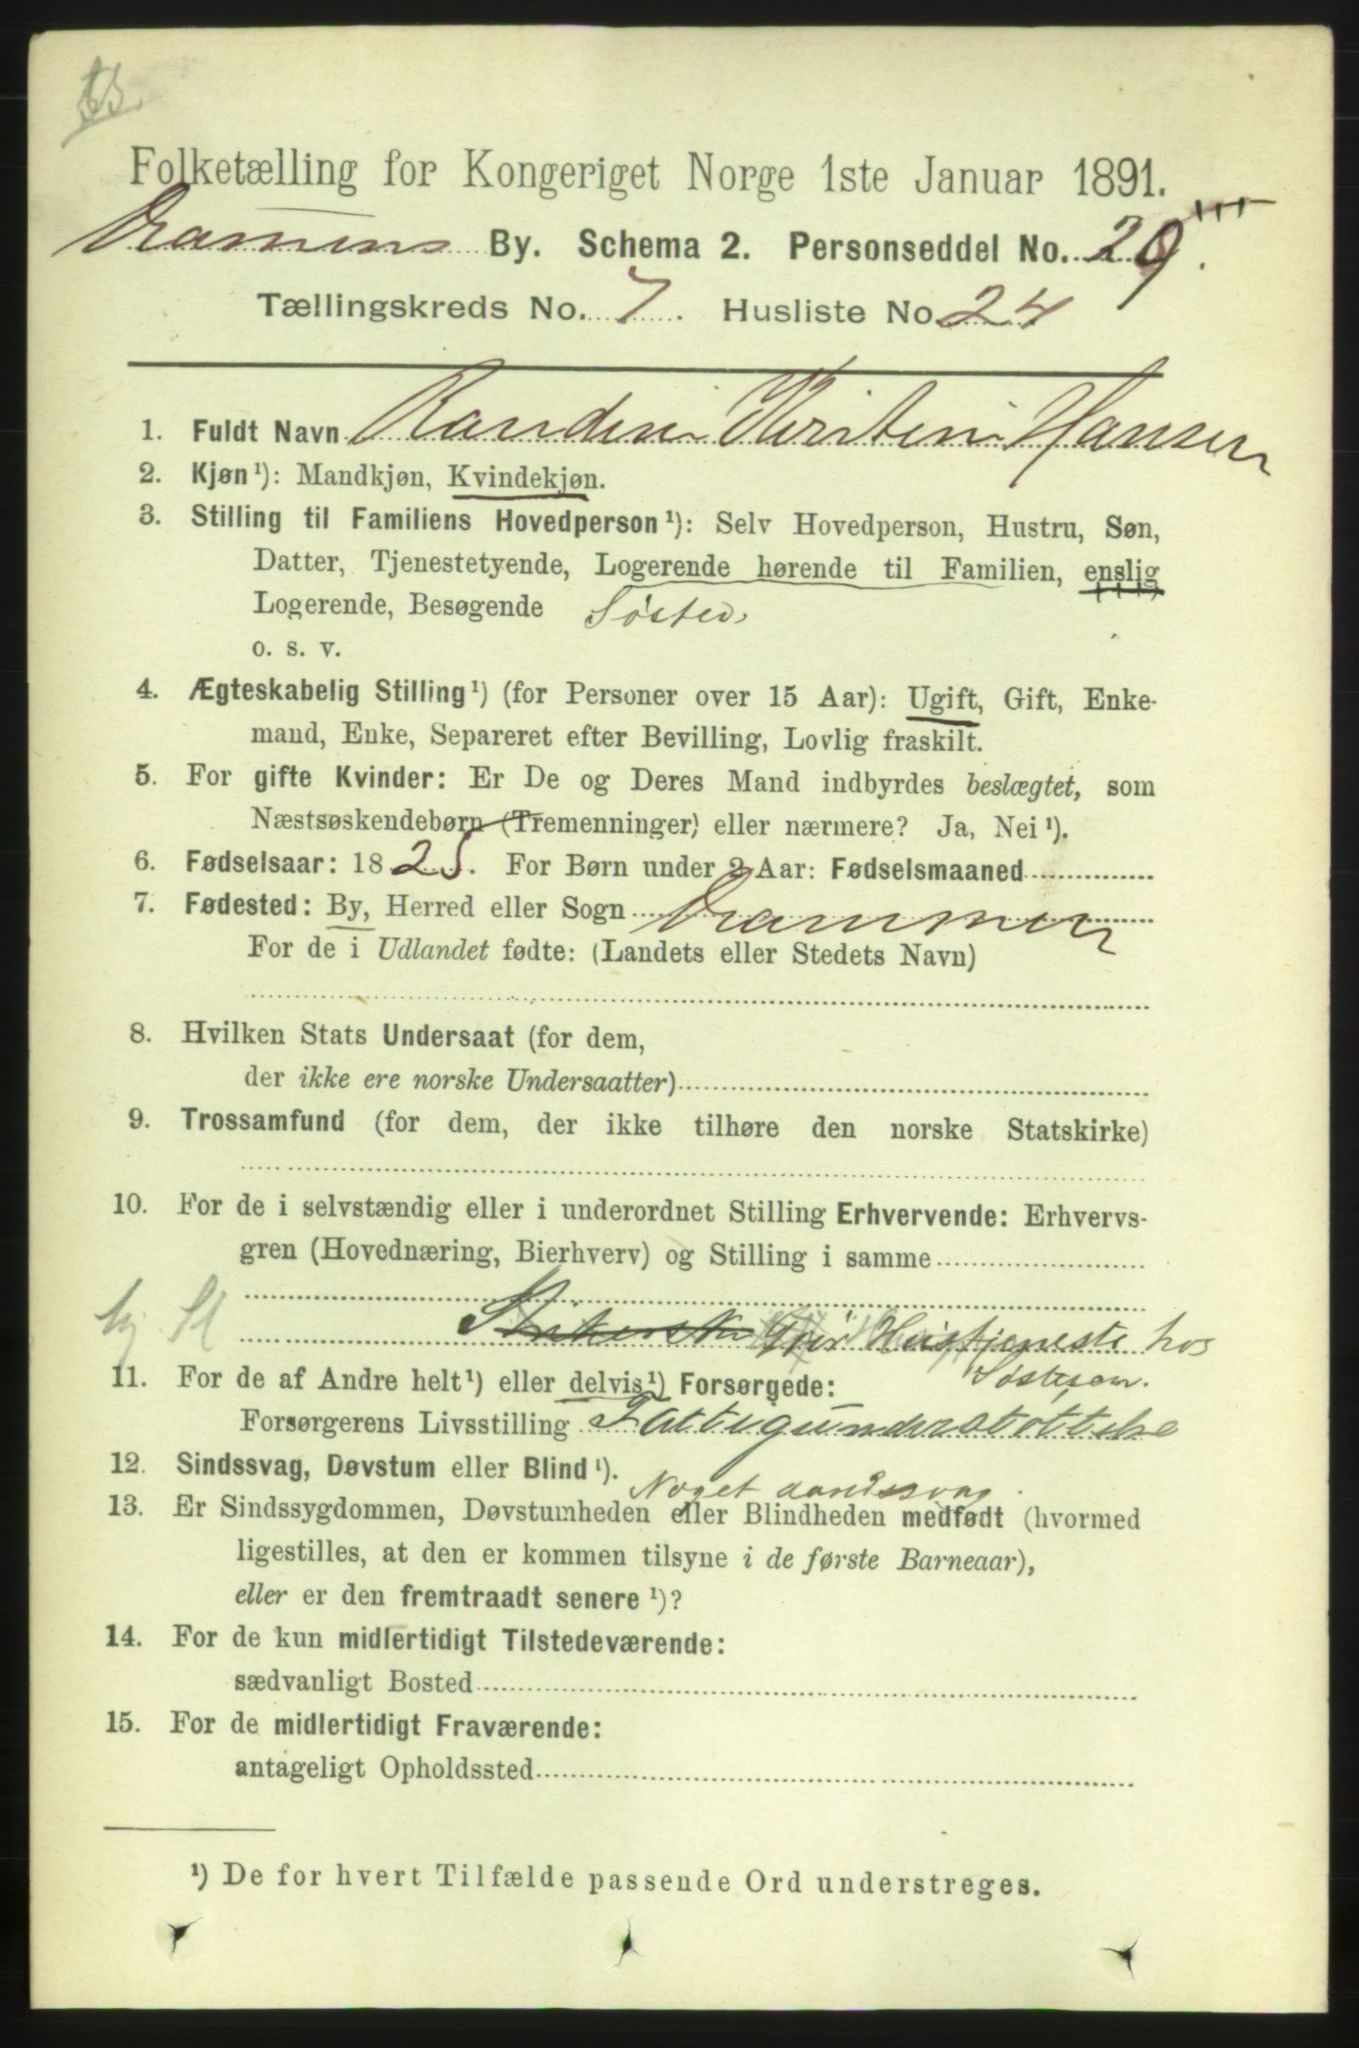 Folketælling for Kongeriget Norge 1ste Januar 1891.
Drammens By. Schema 2. Personseddel No. 29.
Tællingskreds No. 7. Husliste No. 24
1. Fuldt Navn Randine Kristine Hansen
2. Kjøn¹): Mandkjøn, Kvindekjøn.
3. Stilling til Familiens Hovedperson¹): Selv Hovedperson, Hustru, Søn,
Datter, Tjenestetyende, Logerende hørende til Familien, enslig
Logerende, Besøgende Søster
o. s. v.
4. Ægteskabelig Stilling¹) (for Personer over 15 Aar): Ugift, Gift, Enke-
mand, Enke, Separeret efter Bevilling, Lovlig fraskilt.
5. For gifte Kvinder: Er De og Deres Mand indbyrdes beslægtet, som
Næstsøskendebørn (Tremenninger) eller nærmere? Ja, Nei¹).
6. Fødselsaar: 1825. For Børn under 2 Aar: Fødselsmaaned
7. Fødested: By, Herred eller Sogn Drammen
For de i Udlandet fødte: (Landets eller Stedets Navn)
8. Hvilken Stats Undersaat (for dem,
der ikke ere norske Undersaatter)
9. Trossamfund (for dem, der ikke tilhøre den norske Statskirke)
10. For de i selvstændig eller i underordnet Stilling Erhvervende: Erhvervs-
gren (Hovednæring, Bierhverv) og Stilling i samme
Gjør Hustjeneste hos
Søsteren.
11. For de af Andre helt¹) eller delvis¹) Forsørgede:
Forsørgerens Livsstilling Fattigunderstøttelse
12. Sindssvag, Døvstum eller Blind¹).
Noget aandssvag.
13. Er Sindssygdommen, Døvstumheden eller Blindheden medfødt (hvormed
ligestilles, at den er kommen tilsyne i de første Barneaar),
eller er den fremtraadt senere¹)?
14. For de kun midlertidigt Tilstedeværende:
sædvanligt Bosted
15. For de midlertidigt Fraværende:
antageligt Opholdssted
¹) De for hvert Tilfælde passende Ord understreges.